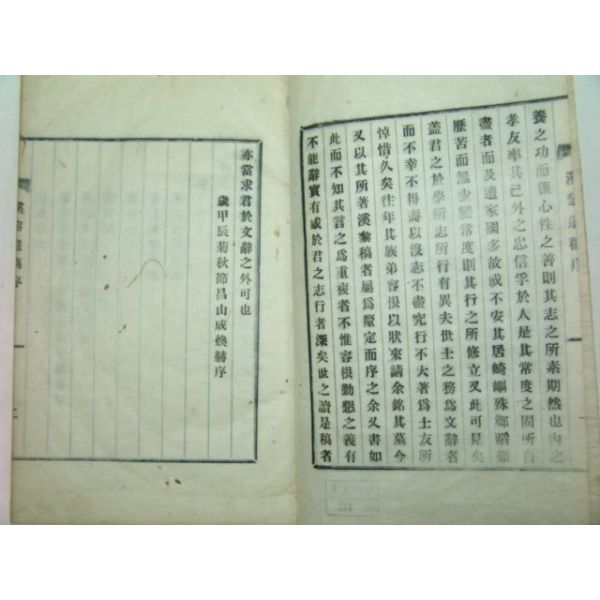 養之功而復心性之善則其志之所素期然也內之
孝友率其己外之忠信孚於人是其常度之固所自
盡者而及遭家國多故或不安其居崎嶇殊鄉
歷苦而無少變常度則其行之所修立又此可見矣
蓋君之於學所志所行有異夫世士之務爲文辭者
而不幸不得壽以沒志不盡究行不大著爲士友所
悼惜久矣往年其族弟容悞以狀來請余銘其墓今
又以其所著溪黎稿者屬爲釐定而序之余又書如
此而不知其言之爲重複者不惟容悞勤懇之義有
不能辭實有感於君之志行者深矣世之讀是稿者
亦當求君於文辭之外可也
歲甲辰菊秋節昌山成煥赫序
溪黎遺稿序